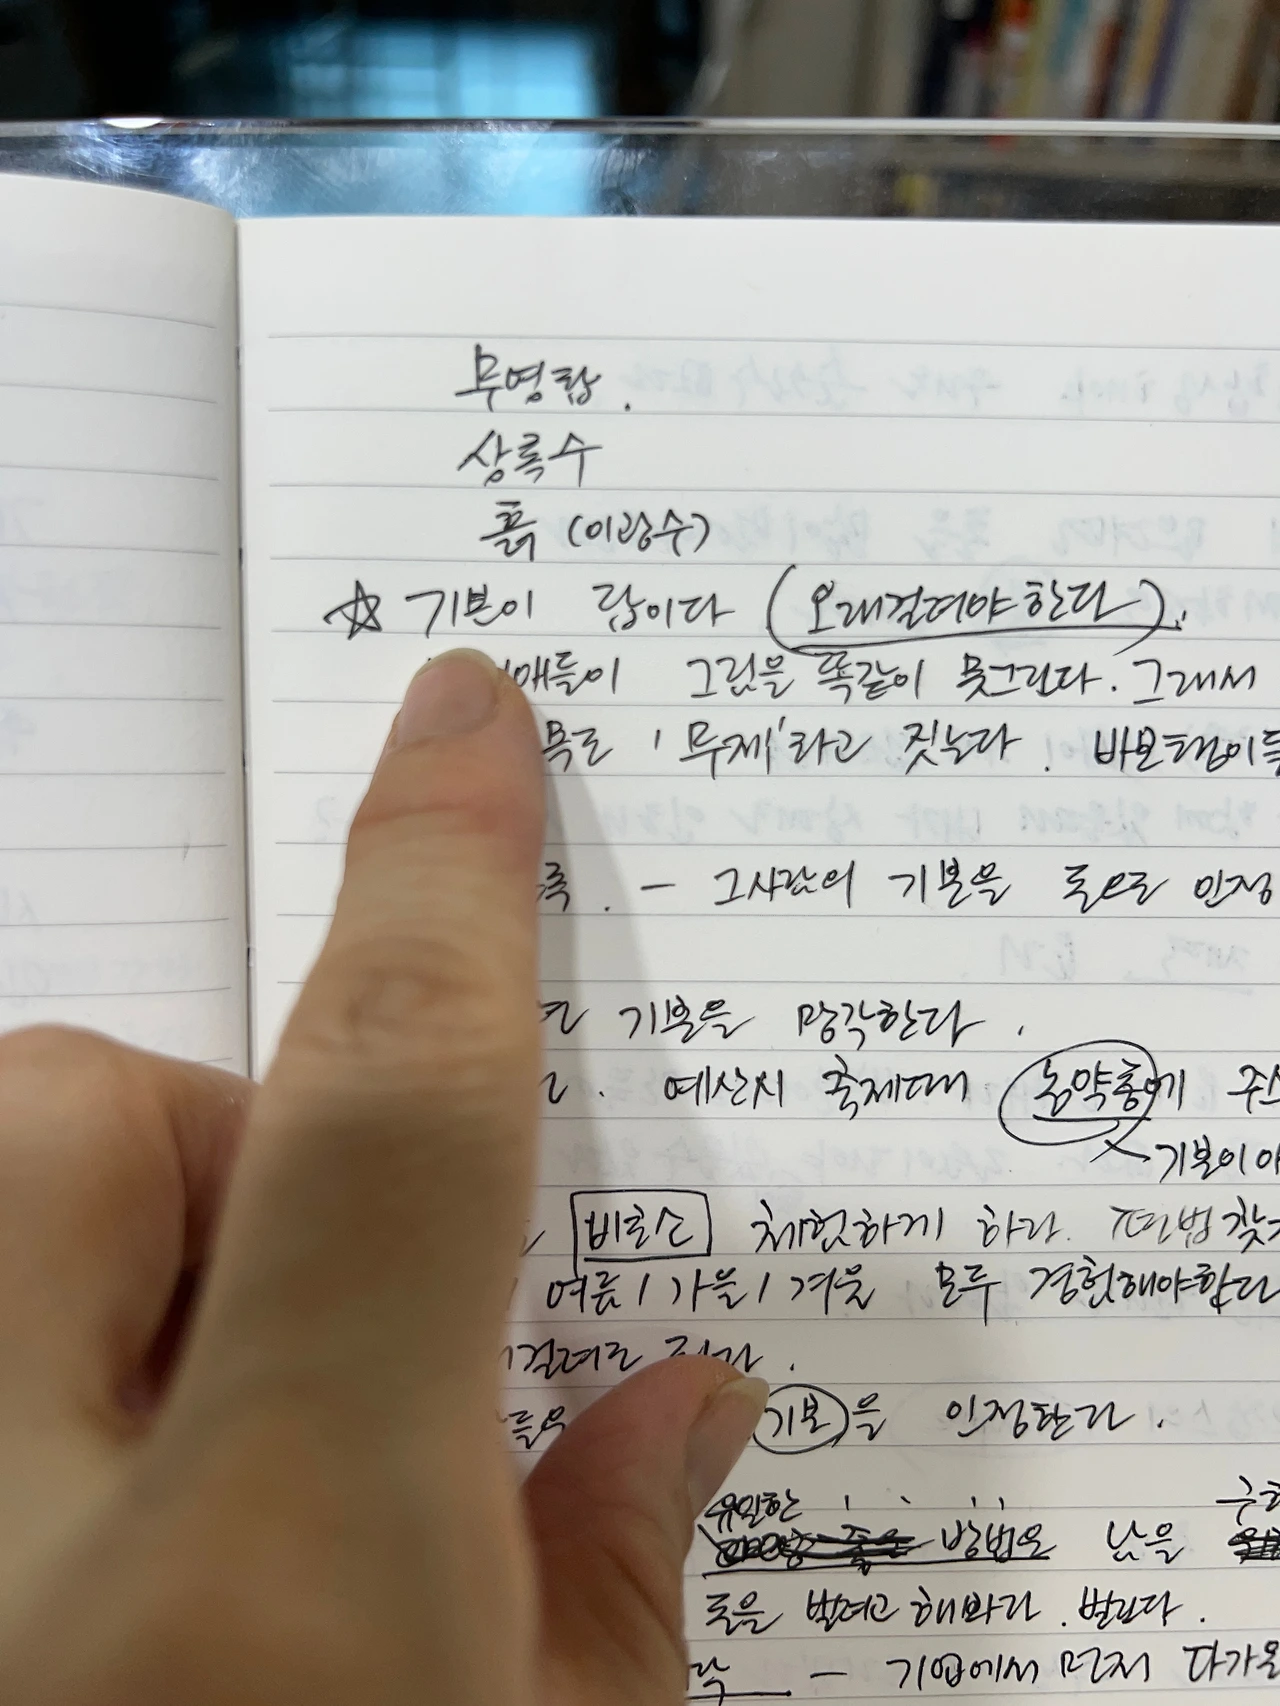 무영탑.
상록수
흙 (이광수)
☆ 기본이 답이다 (오래걸려야 한다).
애들이 그림을 똑같이 못그린다. 그래서
'무제'라고 짓는다. 바보탱이들
- 그사람의 기본을 돈으로 인정
기본을 망각한다.
예산시 축제때 농약통에 주스
기본이 아
비료소 체험하게 하라. 편법찾지
여름/가을/겨울 모두 경험해야한다
기본을 인정한다.
유일한
방법은 남을
돈을 벌려고 해봐라. 벌린다.
- 기업에서 먼저 다가온